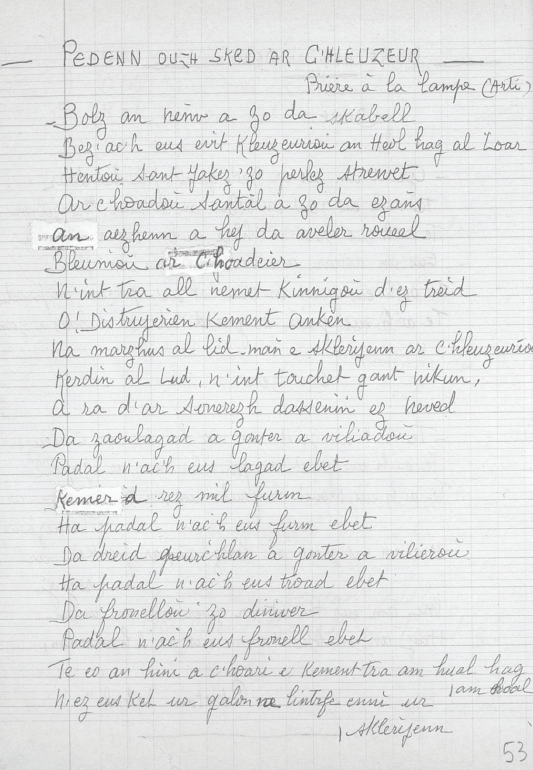 — PEDENN OUZH SKED AR C'HLEUZEUR —
Prière à la lampe (Arti)
Bolz an neñv a zo da skabell
Bez'ac'h eus evit Kleuzeurioù an Heol hag al Loar
Hentoù Sant Jakez 'zo perlez strewet
Ar c'hoadoù Santal a zo da ezañs
an aezhenn a hej da aveler roueel
Bleunioù ar C'hoadeier
N'int tra all nemet Kinnigoù d'ez treid
O! Distrujerien Kement Anken
Na marzhus al lid-mañ e sklerijenn ar c'hleuzeurioù
Kerdin al Lud, n'int touchet gant nikun,
A ra d'ar Sonerezh dassenin ez neved
Da zaoulagad a gonter a viliadoù
Padal n'ac'h eus lagad ebet
Kemer'd rez mil furm
Ha padal n'ac'h eus furm ebet
Da dreid peurc'hlan a gonter a vilieroù
Ha padal n'ac'h eus troad ebet
Da fronelloù 'zo diniver
Padal n'ac'h eus fronell ebet
Te eo an hini a c'hoari e Kement tra am hual hag
am dal
N'ez eus Ket ur galon ne lintrfe enni ur
sklerijenn
53